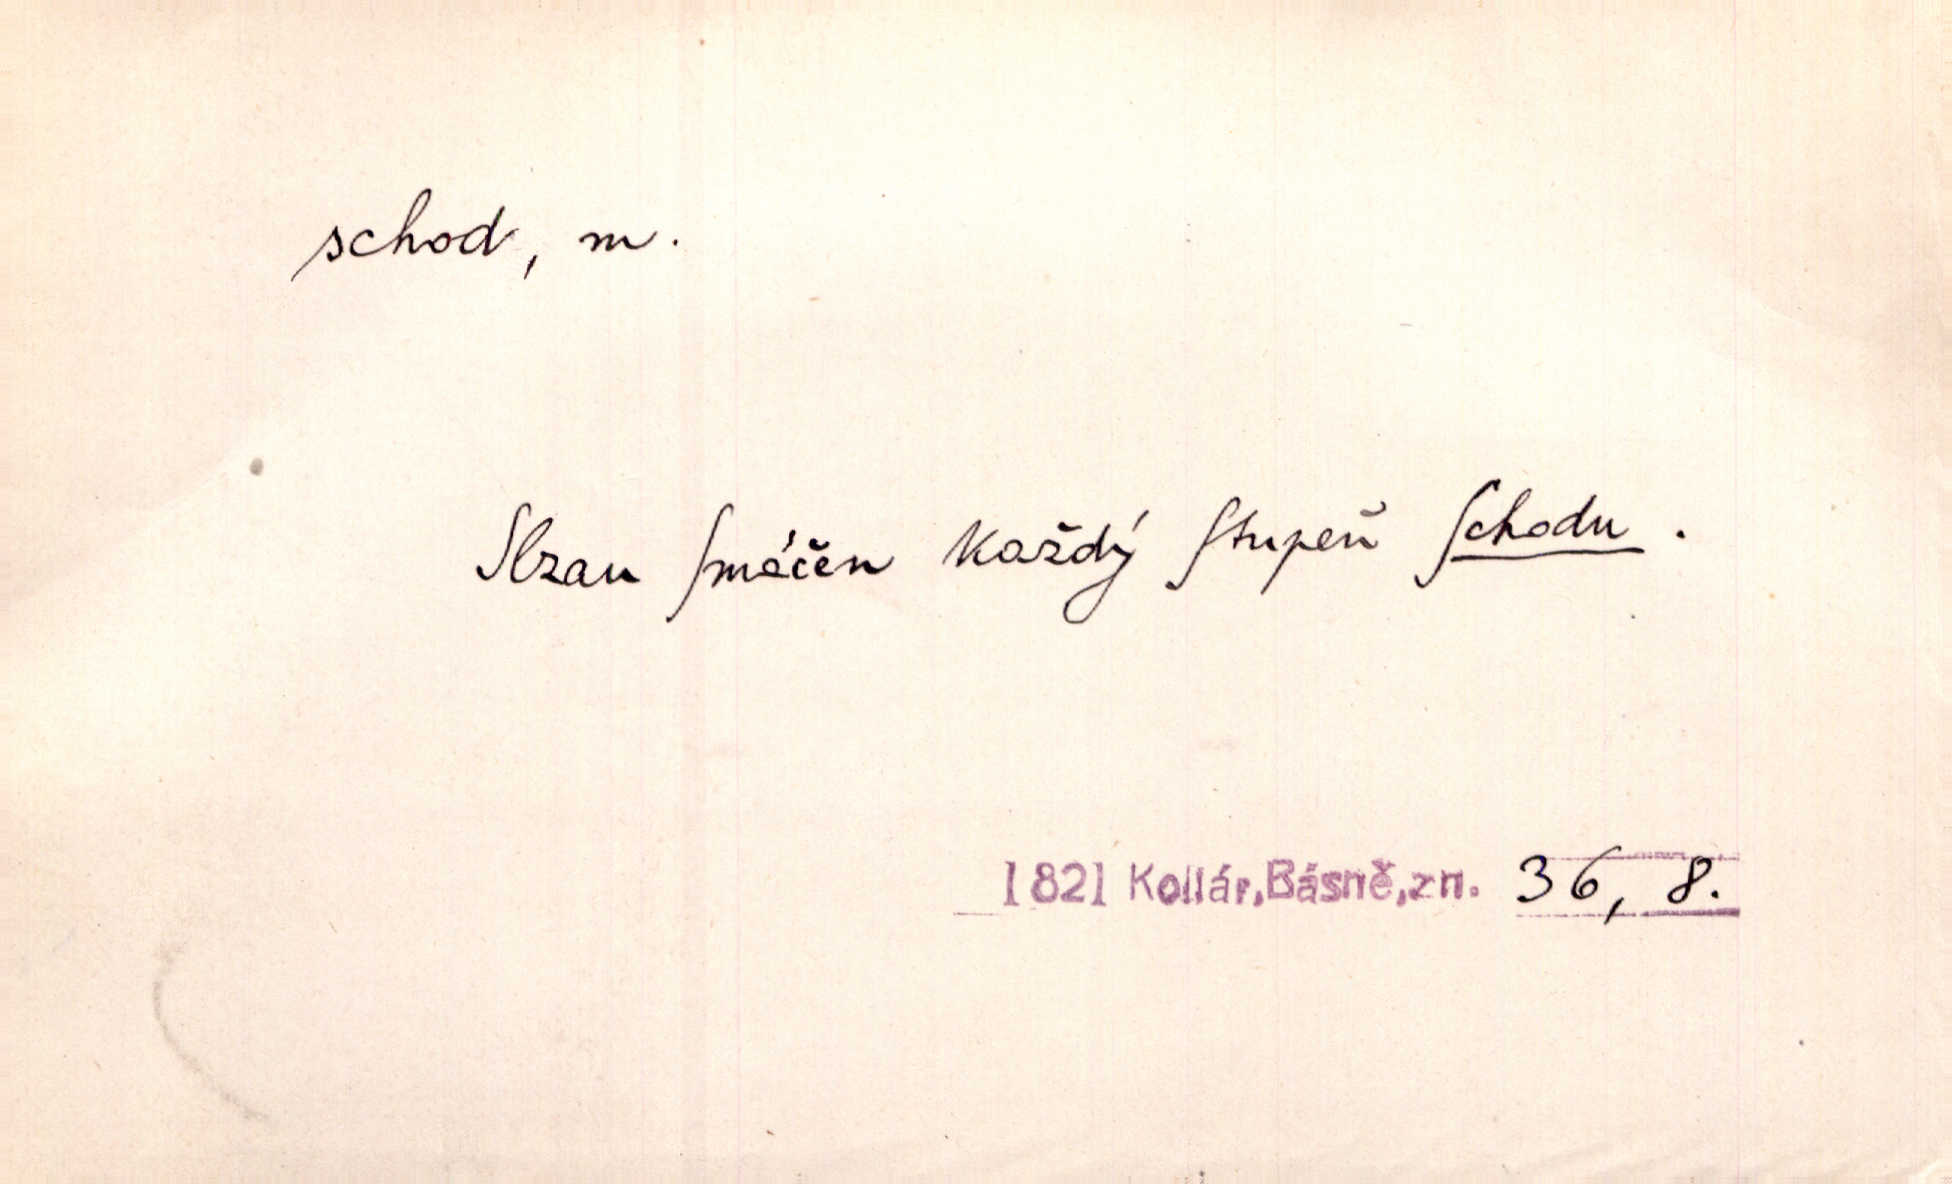 schod, m.
Slzau ſmáčen každý ſtupeň ſchodu.
1821 Kollár, Básně, zn. 36, 8.